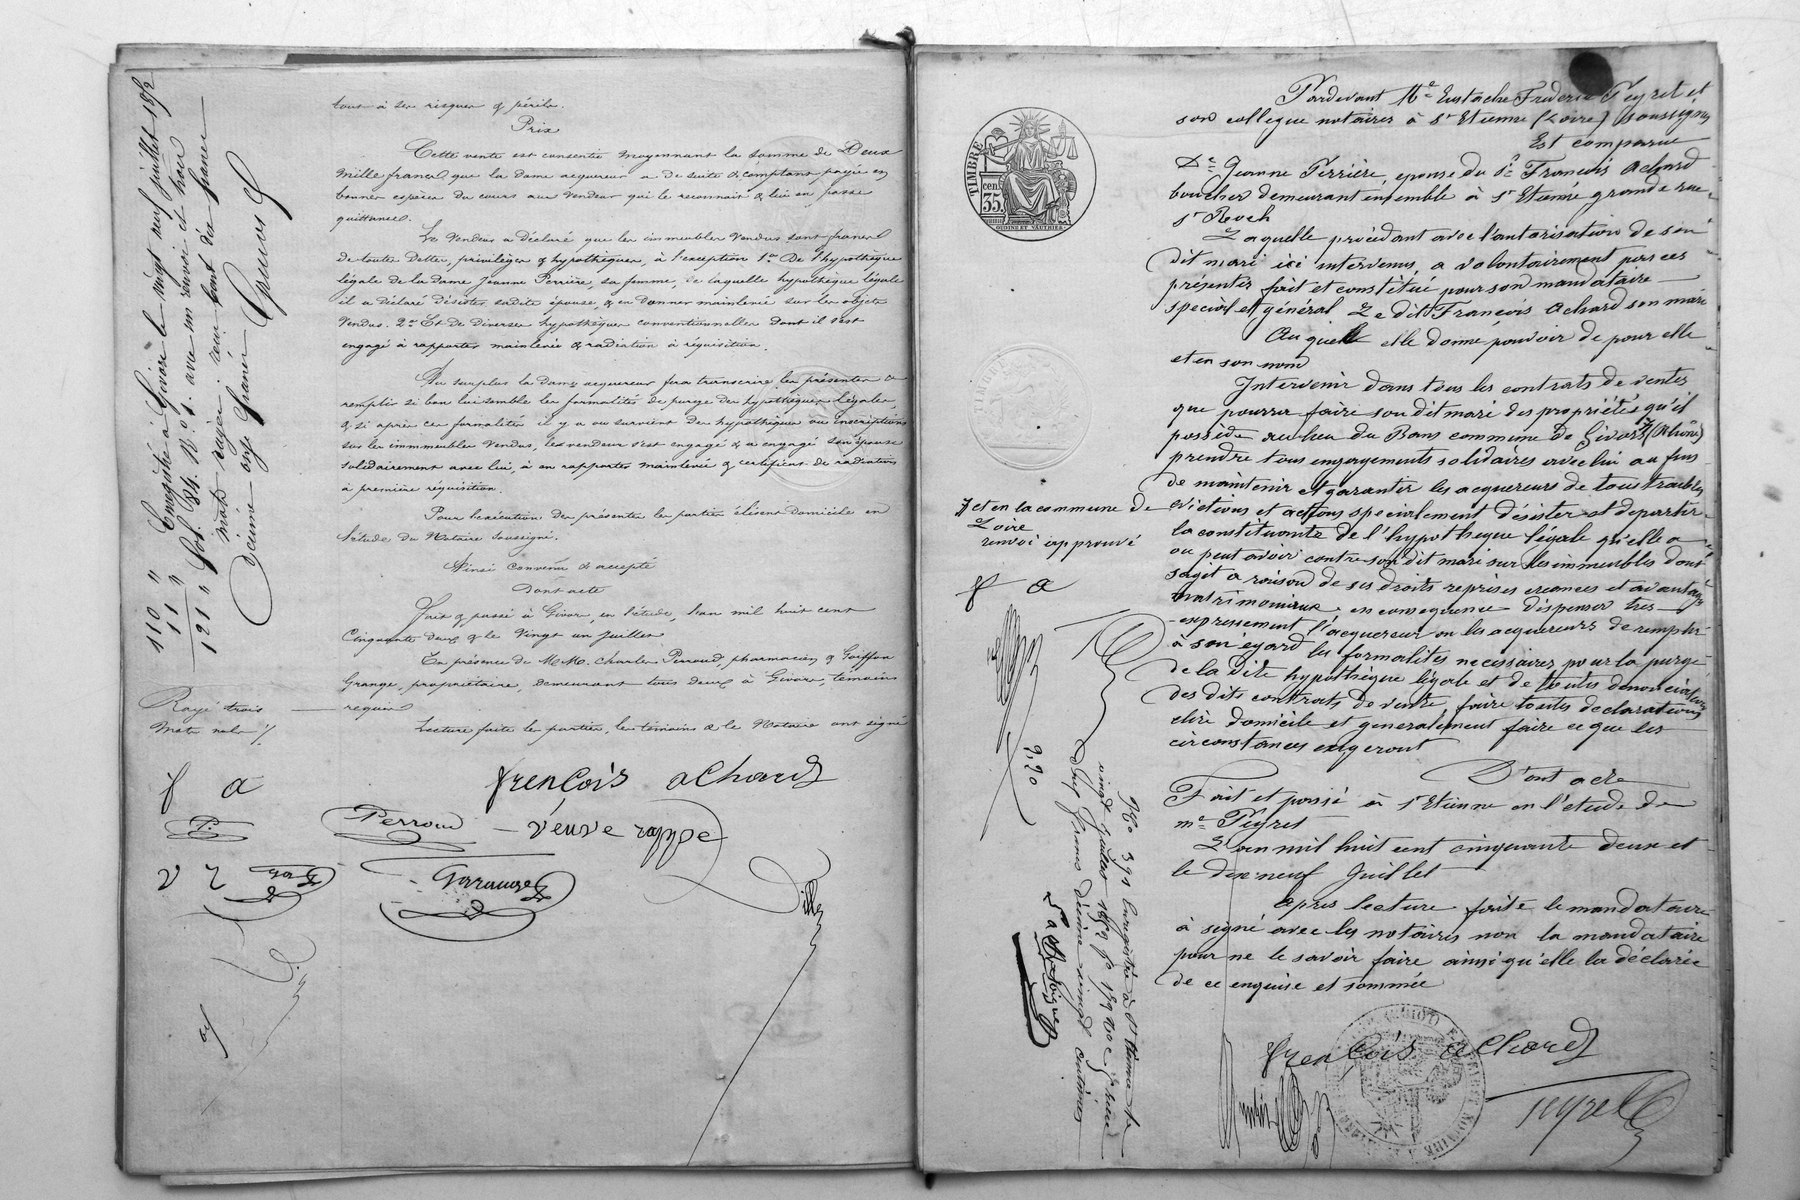 tous à ses risques & périls.
Prix
Cette vente est consentie moyennant la somme de Deux
mille francs que la dame acquereur a de suite & comptant payée en
bonnes espèces du cours aux Vendeur qui le reconnait & lui en passe
quittance.
Le Vendeur a déclaré que les immeubles Vendus sont francs
de toutes dettes, privilèges & hypothèques, à l'exception 1° De l'hypothèque
légale de la dame Jeanne Perrière, sa femme, de laquelle hypothèque légale
il a déclaré désister sadite épouse, & en donner mainlevée sur les objets
Vendus. 2° Et de diverses hypothèques conventionnelles dont il s'est
engagé à rapporter mainlevée & radiation à réquisition.
Au surplus la dame acquereur fera transcrire les présentes &
remplir si bon lui semble les formalités de purge des hypothèques légales,
& si après ces formalités il y a ou survient des hypothèques ou inscriptions
sur les immeubles Vendus, le vendeur s'est engagé & a engagé son épouse
solidairement avec lui, à en rapporter mainlevée & certificat de radiation
à première réquisition.
Pour l'exécution des présentes les parties élisent domicile en
l'étude du Notaire soussigné.
Ainsi convenu & accepté
Dont acte
Fait & passé à Givors, en l'étude, l'an mil huit cent
Cinquante deux & le Vingt un Juillet
En présence de M.M. Charles Perroud, pharmacien & Goiffon
Grange, propriétaire, demeurant tous deux à Givors, témoins
requis
Lecture faite les parties, les témoins & le Notaire ont signé
Rayé trois
mots nuls
françois achard
Perroud
veuve rappe
f a
P.
v r
110 "
11 "
121 "
Enregistré à Givors le vingt neuf juillet 1852
fol. 84. N° 1. avec un renvoi et trois
mots rayés reçu cent dix francs
décime onze francs
TIMBRE
35 cen.
OUDINÉ ET VAUTHIER
Pardevant Me Eustache Frederic Peyret et
son collegue notaires à St Etienne (Loire) soussignés
Est comparue
De Jeanne Perrière, epouse du Sr François Achard
boucher demeurant ensemble à St Etienne grande rue
St Roch
Laquelle procédant avec l'autorisation de son
dit mari ici intervenu, a volontairement par ces
présentes fait et constitué pour son mandataire
special et général Le dit François Achard son mari
Auquel elle donne pouvoir de pour elle
et en son nom
Intervenir dans tous les contrats de ventes
que pourra faire son dit mari des propriétés qu'il
possède au lieu du Bans commune de Givors (Rhône)
prendre tous engagements solidaires avec lui au fins
de maintenir et garantir les acquereurs de tous troubles
evictions et actions specialement désister et departir
la constituante de l'hypothèque légale qu'elle a
ou peut avoir contre son dit mari sur les immeubles dont
sagit a raison de ses droits reprises creances et avantages
matrimoniaux en consequence dispenser tres
expressement l'acquereur ou les acquereurs de remplir
à son egard les formalités necessaires pour la purge
de la dite hypothèque légale et de toutes denonciations
des dits contrats de vente, faire toutes declarations
elire domicile et generalement faire ce que les
circonstances exigeront
Dont acte
Fait et passé à St Etienne en l'etude de
me Peyret
L'an mil huit cent cinquante deux et
le dix neuf Juillet
Apres lecture faite le mandataire
à signé avec les notaires non la mandataire
pour ne le savoir faire ainsi qu'elle la déclarée
de ce enquise et sommée
et en la commune de
Loire
renvoi approuvé
f a
françois achard
Peyret
2,20